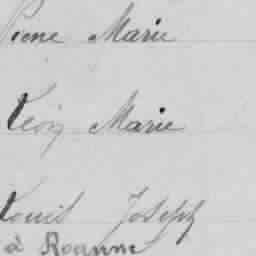 Pierre Marie
Léon Marie
Louis Joseph
à Roanne